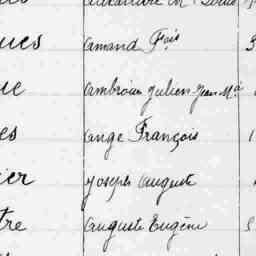 ues Amand Fois 3
ue Ambroise Julien Jean Ma
es Ange François 1
ier Joseph Auguste
tre Auguste Eugène 5